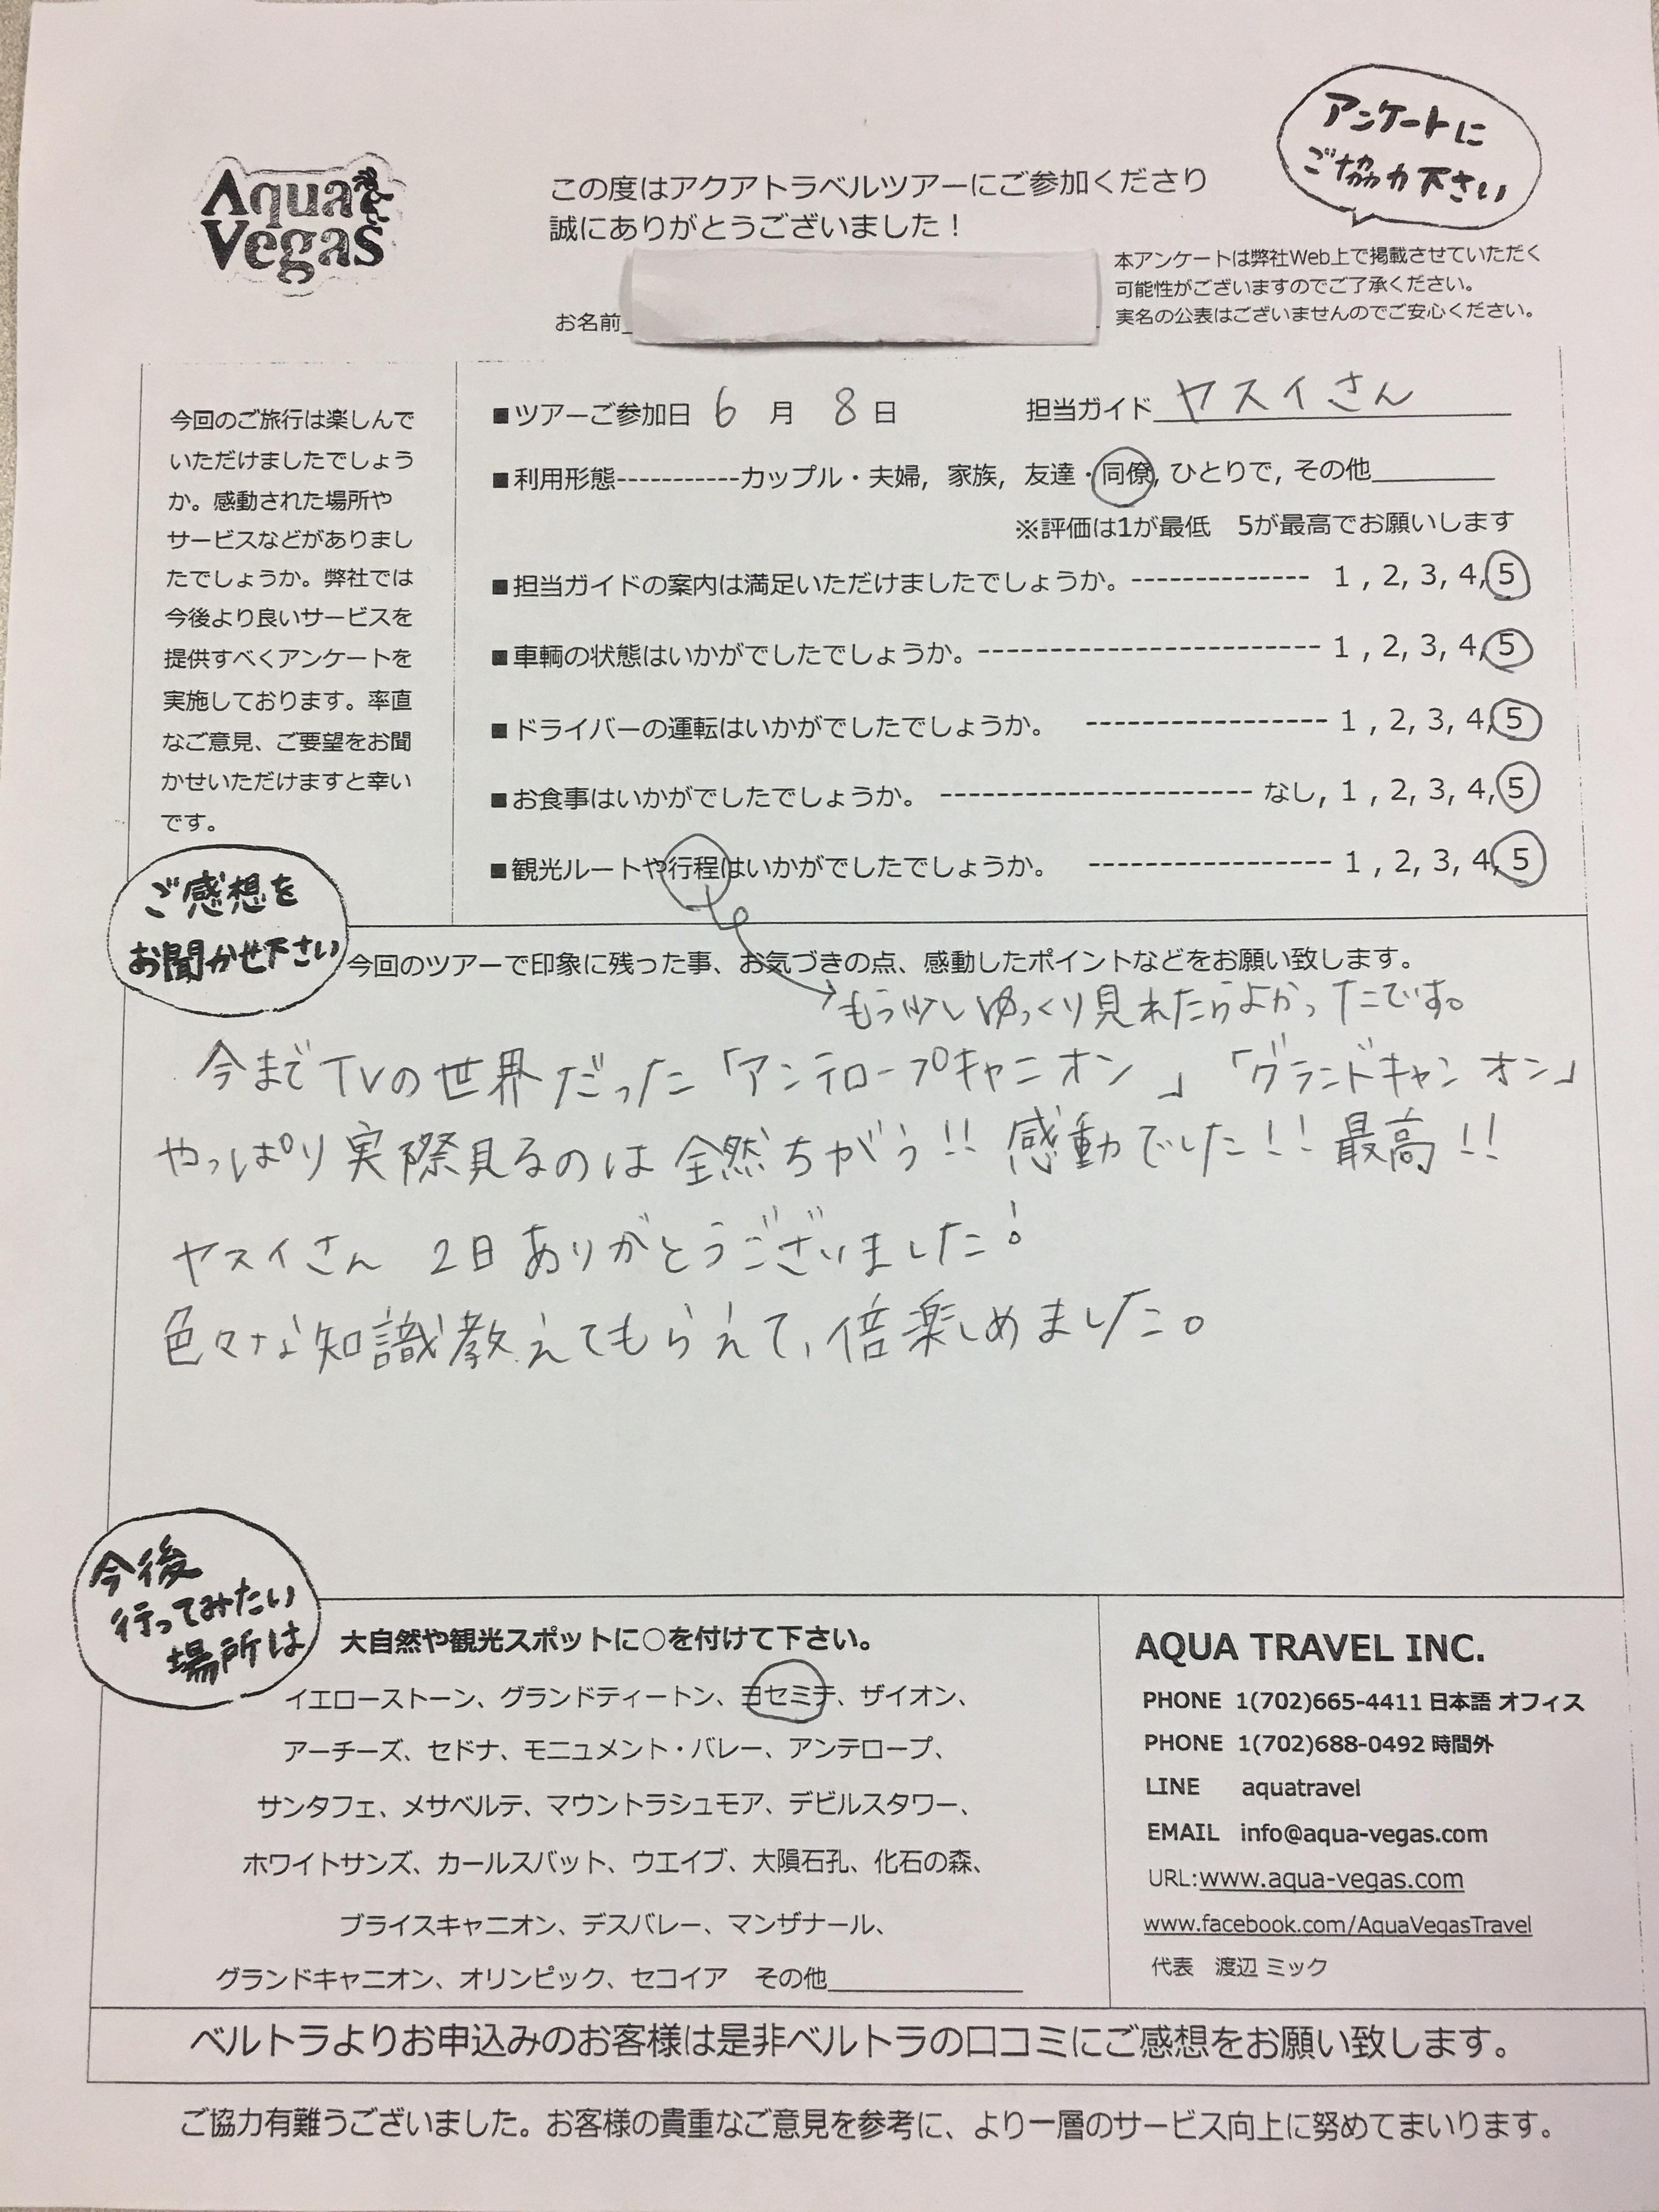 Aqua
Vegas
この度はアクアトラベルツアーにご参加くださり
誠にありがとうございました！
アンケートに
ご協力下さい
お名前
本アンケートは弊社Web上で掲載させていただく
可能性がございますのでご了承ください。
実名の公表はございませんのでご安心ください。
今回のご旅行は楽しんで
いただけましたでしょう
か。感動された場所や
サービスなどがありまし
たでしょうか。弊社では
今後より良いサービスを
提供すべくアンケートを
実施しております。率直
なご意見、ご要望をお聞
かせいただけますと幸い
です。
■ツアーご参加日 6 月 8 日 担当ガイド ヤスイさん
■利用形態-----------カップル・夫婦, 家族, 友達・同僚, ひとりで, その他
※評価は1が最低 5が最高でお願いします
■担当ガイドの案内は満足いただけましたでしょうか。-------------- 1 , 2, 3, 4, 5
■車輌の状態はいかがでしたでしょうか。------------------------ 1 , 2, 3, 4, 5
■ドライバーの運転はいかがでしたでしょうか。 ----------------- 1 , 2, 3, 4, 5
■お食事はいかがでしたでしょうか。 ---------------------- なし, 1 , 2, 3, 4, 5
■観光ルートや行程はいかがでしたでしょうか。 ----------------- 1 , 2, 3, 4, 5
ご感想を
お聞かせ下さい
今回のツアーで印象に残った事、お気づきの点、感動したポイントなどをお願い致します。
もう少しゆっくり見れたらよかったです。
今までTVの世界だった「アンテロープキャニオン」「グランドキャンオン」
やっぱり実際見るのは全然ちがう!! 感動でした!! 最高!!
ヤスイさん 2日ありがとうございました!
色々な知識教えてもらえて、倍楽しめました。
今後
行ってみたい
場所は
大自然や観光スポットに○を付けて下さい。
イエローストーン、グランドティートン、ヨセミテ、ザイオン、
アーチーズ、セドナ、モニュメント・バレー、アンテロープ、
サンタフェ、メサベルテ、マウントラシュモア、デビルスタワー、
ホワイトサンズ、カールスバット、ウエイブ、大隕石孔、化石の森、
ブライスキャニオン、デスバレー、マンザナール、
グランドキャニオン、オリンピック、セコイア その他
AQUA TRAVEL INC.
PHONE 1(702)665-4411 日本語 オフィス
PHONE 1(702)688-0492 時間外
LINE aquatravel
EMAIL info@aqua-vegas.com
URL:www.aqua-vegas.com
www.facebook.com/AquaVegasTravel
代表 渡辺 ミック
ベルトラよりお申込みのお客様は是非ベルトラの口コミにご感想をお願い致します。
ご協力有難うございました。お客様の貴重なご意見を参考に、より一層のサービス向上に努めてまいります。